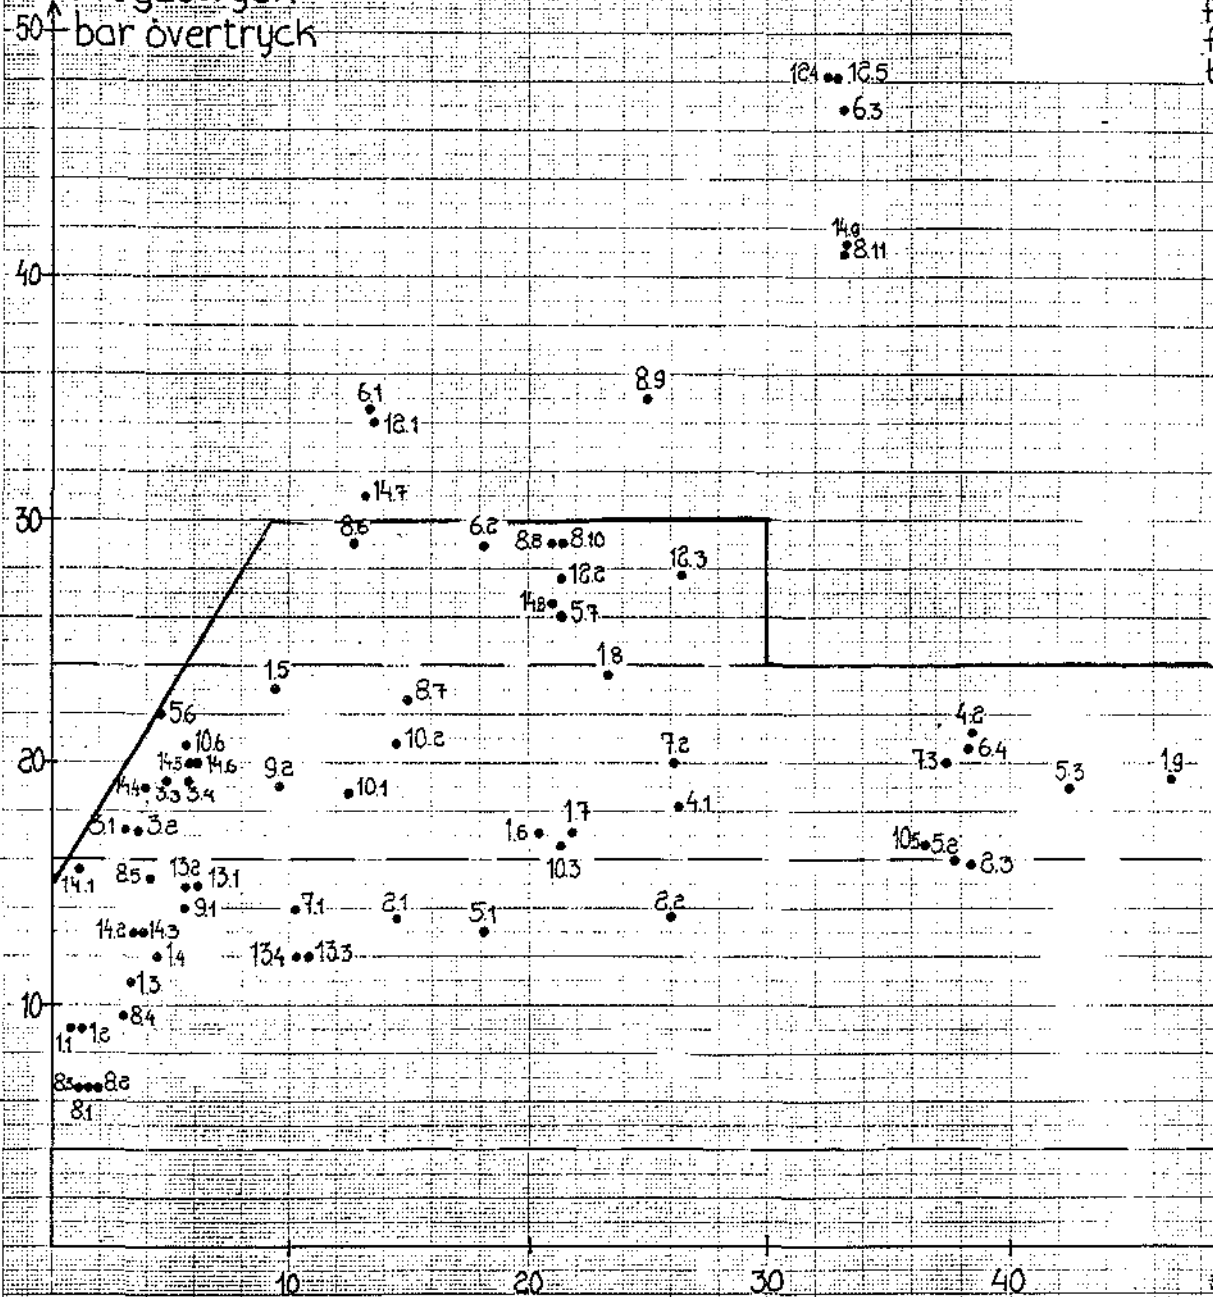 50
bar övertryck
12.4 12.5
6.3
14.9
8.11
40
8.9
6.1
12.1
14.7
30
8.6 6.2 8.8 8.10
12.2 12.3
14.8 5.7
1.5 1.8
8.7
5.6
10.6 10.2 7.2 4.2
6.4
20
14.5 14.6 7.3
14.4 3.3 3.4 9.2 10.1 5.3 1.9
4.1
3.1 3.2 1.6 1.7
10.3 10.5 5.2 2.3
14.1 8.5 13.2 13.1
9.1 7.1 2.1 5.1 2.2
14.2 14.3
1.4 13.4 13.3
1.3
10
8.4
1.1 1.2
8.3 8.2
8.1
10 20 30 40